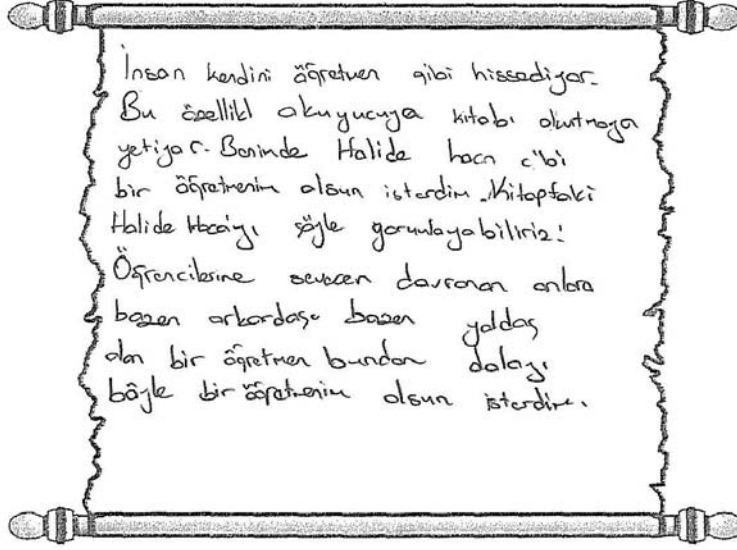 İnsan kendini öğretmen gibi hissediyor.
Bu özellikl okuyucuya kitabı okutmaya
yetiyor. Benimde Halide hoca gibi
bir öğretmenim olsun isterdim. Kitaptaki
Halide Hoca'yı şöyle yorumlayabiliriz:
Öğrencilerine sevecen davranan onlara
bazen arkardaşı bazen yoldaş
olan bir öğretmen bundan dolayı
böyle bir öğretmenim olsun isterdim.